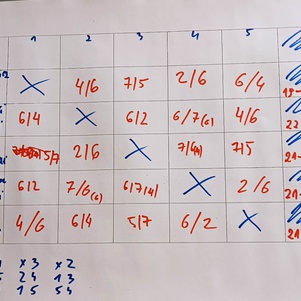 1 2 3 4 5
X 4/6 7/5 2/6 6/4
6/4 X 6/2 6/7(6) 4/6
5/7 2/6 X 7/5
6/2 7/6(6) 6/7(4) X 2/6
4/6 6/4 5/7 6/2 X
x3 x2
24 13
15 54